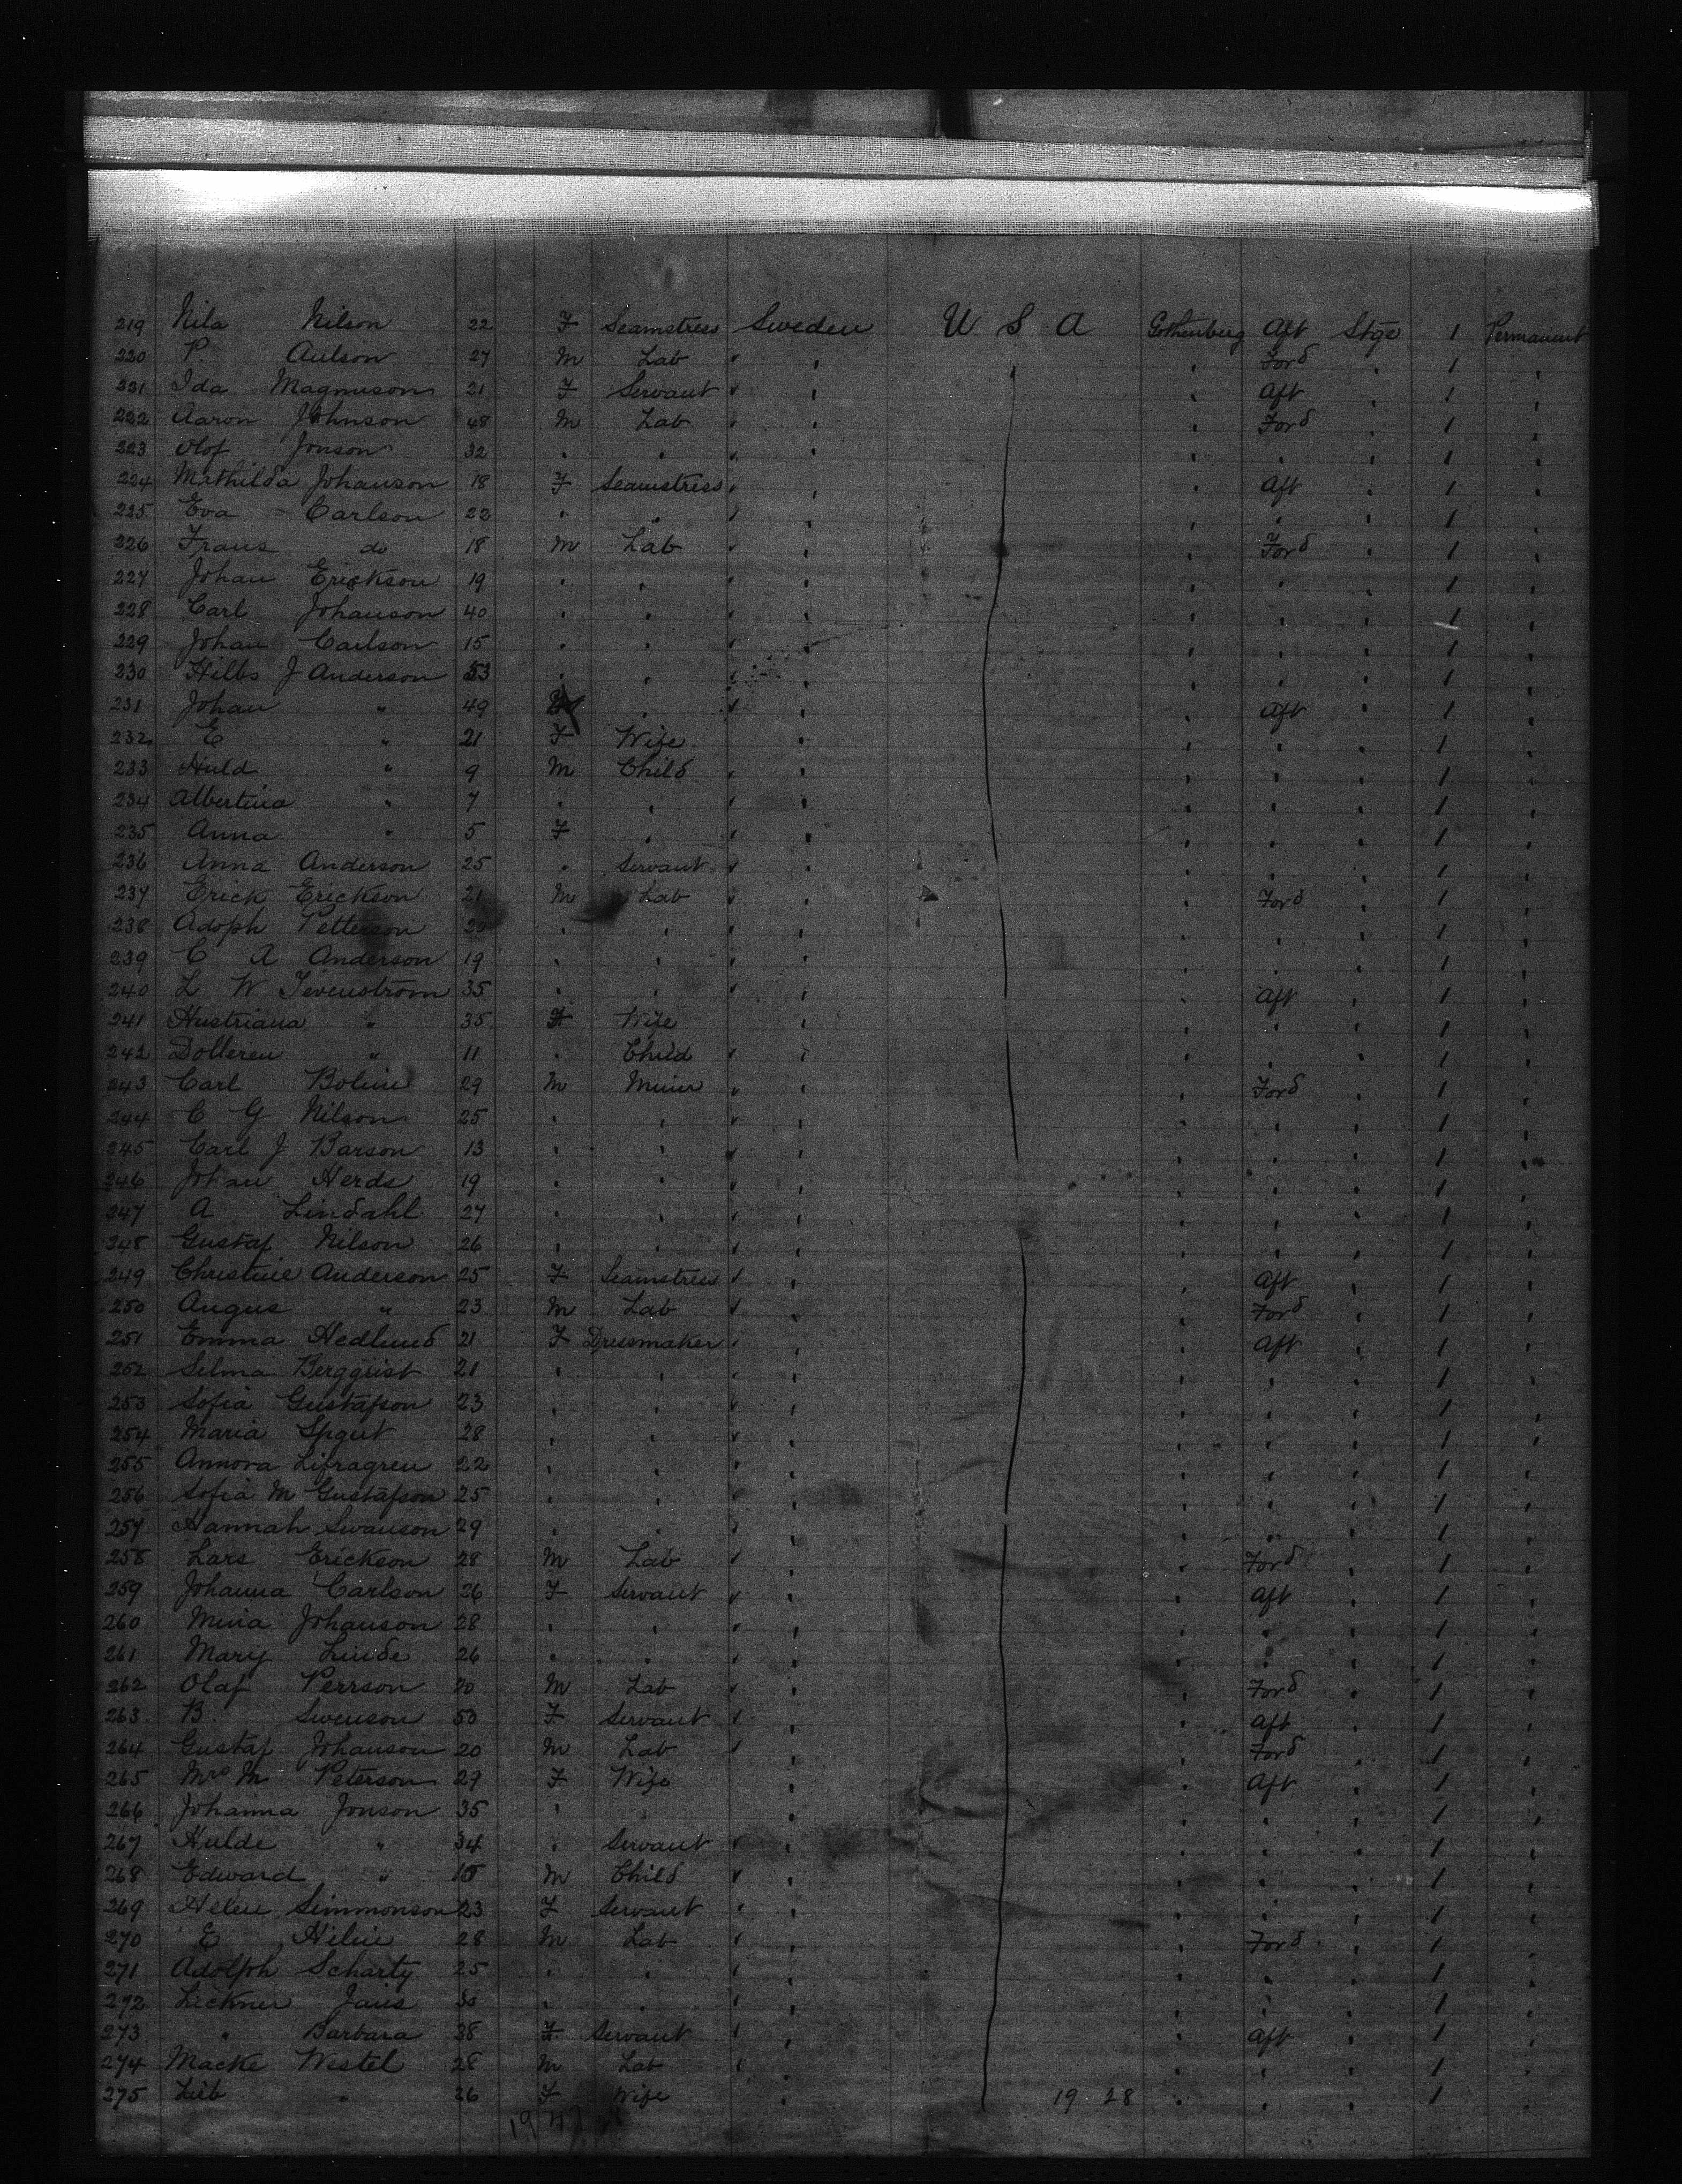 219 Nila Nilson 22 F Seamstress Sweden U S A Gothenberg Aft Stge 1 Permanent
220 P. Aulson 27 M Lab " " " Ford " 1 "
221 Ida Magnuson 21 F Servant " " " Aft " 1 "
222 Aaron Johnson 48 M Lab " " " Ford " 1 "
223 Olof Jonson 32 " " " " " " " 1 "
224 Mathilda Johanson 18 F Seamstress " " " Aft " 1 "
225 Eva Carlson 22 " " " " " " " 1 "
226 Frans do 18 M Lab " " " Ford " 1 "
227 Johan Erickson 19 " " " " " " " 1 "
228 Carl Johanson 40 " " " " " " " 1 "
229 Johan Carlson 15 " " " " " " " 1 "
230 J Anderson 53 " " " " " " " 1 "
231 Johan " 49 " " " " Aft " 1 "
232 E " 21 F Wife " " " " 1 "
233 Huld " 9 M Child " " " " " 1 "
234 Albertina " 7 " " " " " " " 1 "
235 Anna " 5 F " " " " " " 1 "
236 Anna Anderson 25 " Servant " " " " " 1 "
237 Erick Erickson 21 M Lab " " " Ford " 1 "
238 Adoph Petterson " " " " " " " 1 "
239 C A Anderson 19 " " " " " " " 1 "
240 L W Tevenstrom 35 " " " " " Aft " 1 "
241 Hustriana " 35 F Wife " " " " 1 "
242 Dolleren " 11 " Child " " " " " 1 "
243 Carl Boline 29 M Miner " " " Ford " 1 "
244 C G Nilson 25 " " " " " " " 1 "
245 Carl J Barson 13 " " " " " " " 1 "
246 Johan Herds 19 " " " " " " " 1 "
247 A Lindahl 27 " " " " " " " 1 "
248 Gustaf Nilson 26 " " " " " " " 1 "
249 Christine Anderson 25 F Seamstress " " " Aft " 1 "
250 Angus " 23 M Lab " " " Ford " 1 "
251 Emma Hedlund 21 F Dressmaker " " " Aft " 1 "
252 Selma Bergquist 21 " " " " " " " 1 "
253 Sofia Gustafson 23 " " " " " " " 1 "
254 Maria 28 " " " " " " " 1 "
255 Annova Lifragren 22 " " " " " " " 1 "
256 Sofia M Gustafson 25 " " " " " " " 1 "
257 Hannah Swanson 29 " " " " " " " 1 "
258 Lars Erickson 28 M Lab " " " Ford " 1 "
259 Johanna Carlson 26 F Servant " " " Aft " 1 "
260 Mina Johanson 28 " " " " " " " 1 "
261 Mary Linde 26 " " " " " " " 1 "
262 Olaf Perrson 20 M Lab " " " Ford " 1 "
263 B. Swenson 50 F Servant " " " Aft " 1 "
264 Gustaf Johanson 20 M Lab " " " Ford " 1 "
265 Mrs M Peterson 29 F Wife " " Aft " 1 "
266 Johanna Jonson 35 " " " " " " 1 "
267 Hulde " 34 " Servant " " " " " 1 "
268 Edward " M Child " " " " " 1 "
269 Helen Simmonson 23 F Servant " " " " " 1 "
270 E Hiline 28 M Lab " " " Ford " 1 "
271 Adolph Scharty 25 " " " " " " " 1 "
272 Lickner Janis 30 " " " " " " " 1 "
273 " Barbara 28 F Servant " " " Aft " 1 "
274 Macke Westel 28 M Lab " " " " " 1 "
275 Lieb " 26 F Wife " 19 28 " " " 1 "